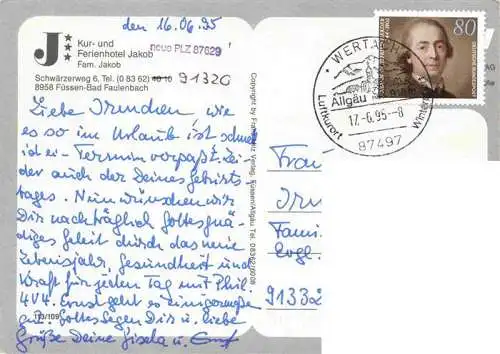 den 16.06.95
J
***
Kur- und
Ferienhotel Jakob
Fam. Jakob
neue PLZ 87629
Schwärzerweg 6, Tel. (0 83 62) 91320
8958 Füssen-Bad Faulenbach
Liebe Irmchen, wie
es so im Urlaub ist schnell
ist ei- Termin verpaßt. Lei-
der auch der Deines Geburts
tages. Nun wünschen wir
Dir nachträglich Gottes gnä-
diges Geleit durch das neue
Lebensjahr, Gesundheit und
Kraft für jeden Tag mit Phil.
4 V 4. Ernst geht es einigermaße
gut. Gottes Segen Dir u. liebe
Grüße Deine Gisela u. Ernst
10/109
Tel. 08362/6008
80
DEUTSCHE BUNDESPOST
WERTACH
Allgäu
Luftkurort
17.-6.95-8
87497
Frau
Irm
Famil
Evgl.
91332